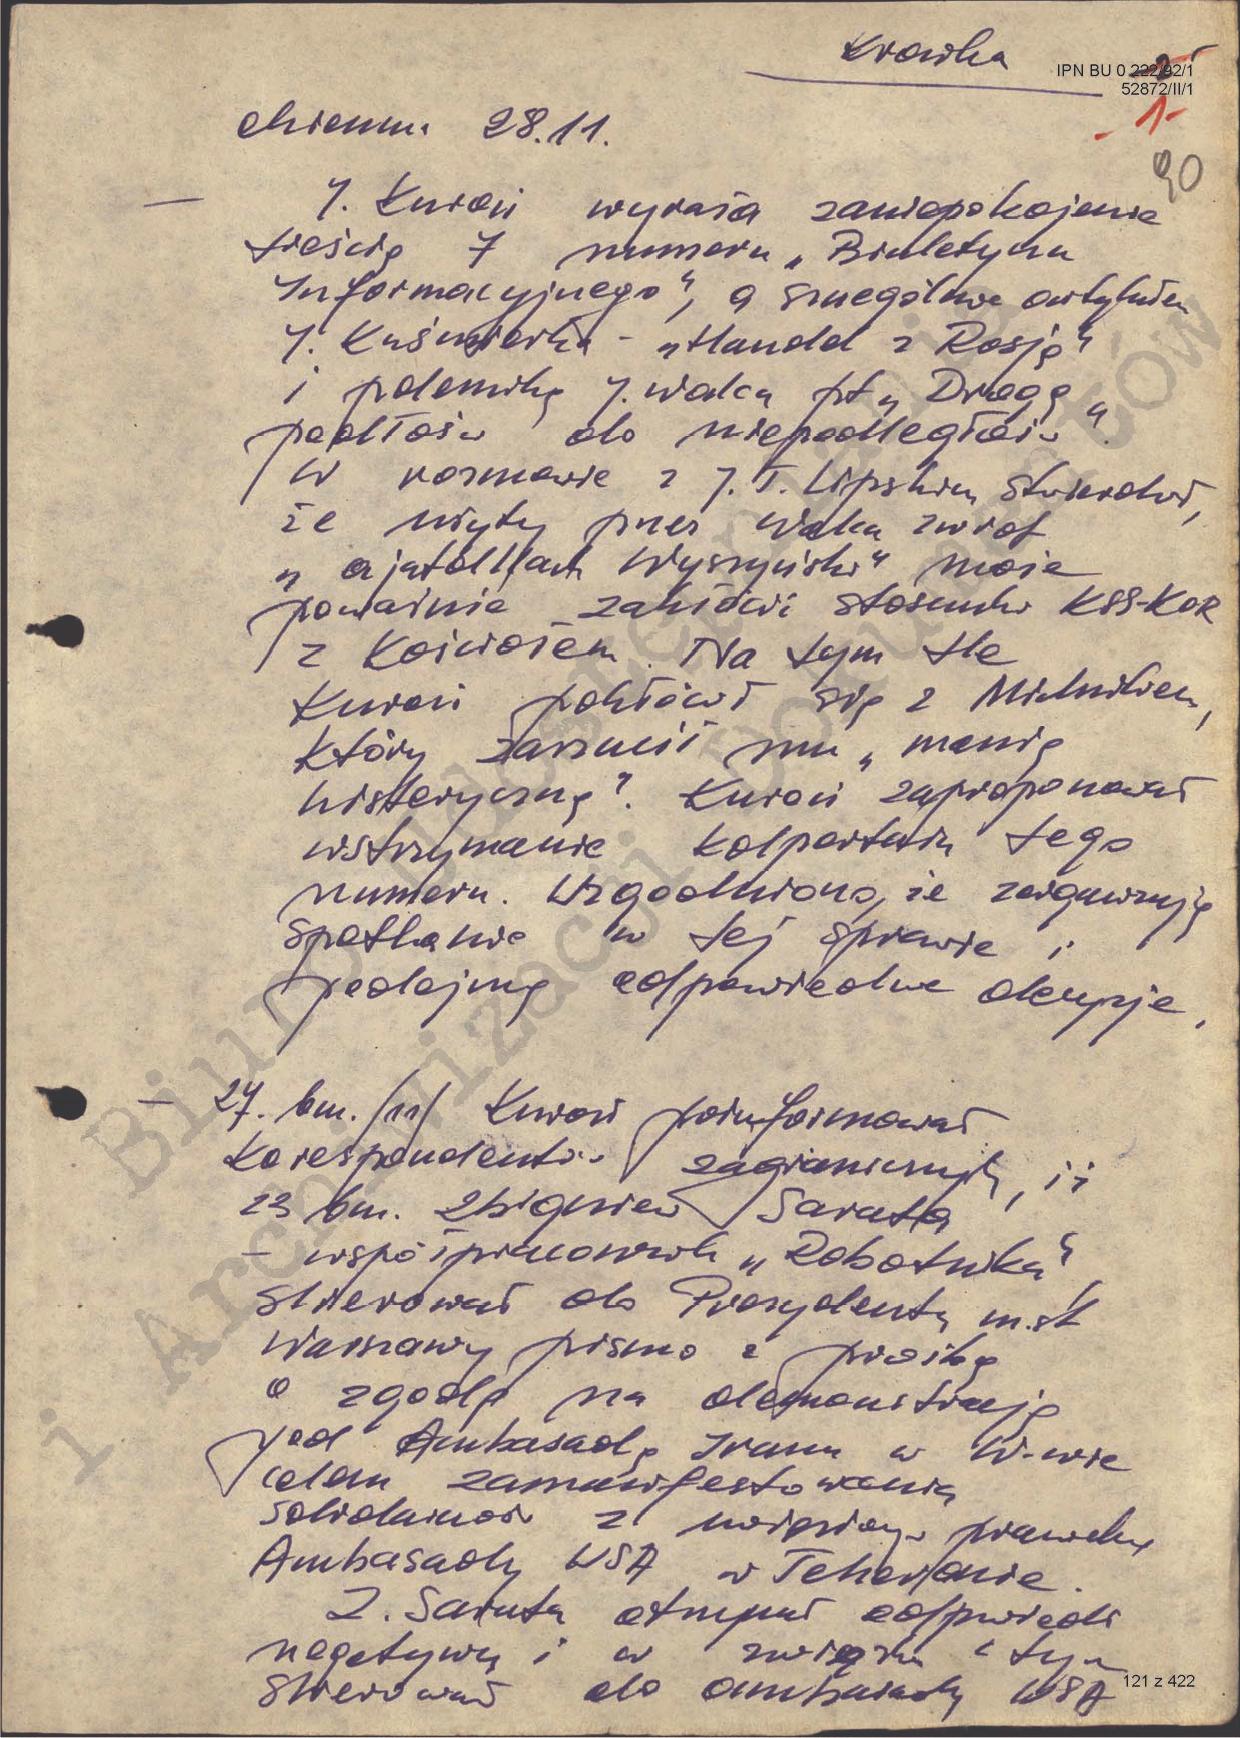 Krowka
IPN BU 0 222/92/1
52872/II/1
2
- 1 -
90
28.11.
— J. Kuroń wyraża zaniepokojenie
treścią 7 numeru „Biuletynu
Informacyjnego", a szczególnie artykułem
J. Kuśmierka - „Handel z Rosją"
i polemiką J. Walca pt „Drogą
podłości do niepodległości".
W rozmowie z J.J. Lipskim stwierdził,
że użyty przez Walca zwrot
„ajatollach Wyszyński" może
poważnie zakłócić stosunki KSS-KOR
z Kościołem. Na tym tle
Kuroń pokłócił się z Michnikiem,
który zarzucił mu „manię
histeryczną". Kuroń zaproponował
wstrzymanie kolportażu tego
numeru. Uzgodniono, że zorganizują
spotkanie w tej sprawie i
podejmą odpowiednie decyzje.
— 27. bm. /11/ Kuroń poinformował
korespondentów zagranicznych, iż
23 bm. Zbigniew Saruta
- współpracownik „Robotnika",
skierował do Prezydenta m.st
Warszawy pismo z prośbą
o zgodę na demonstrację
pod Ambasadą Iranu w W-wie
celem zamanifestowania
solidarności z uwięzionymi pracownikami
Ambasady USA w Teheranie.
Z. Saruta otrzymał odpowiedź
negatywną i w związku z tym
skierował do ambasady USA
121 z 422
Biuro Udostępniania
i Archiwizacji Dokumentów